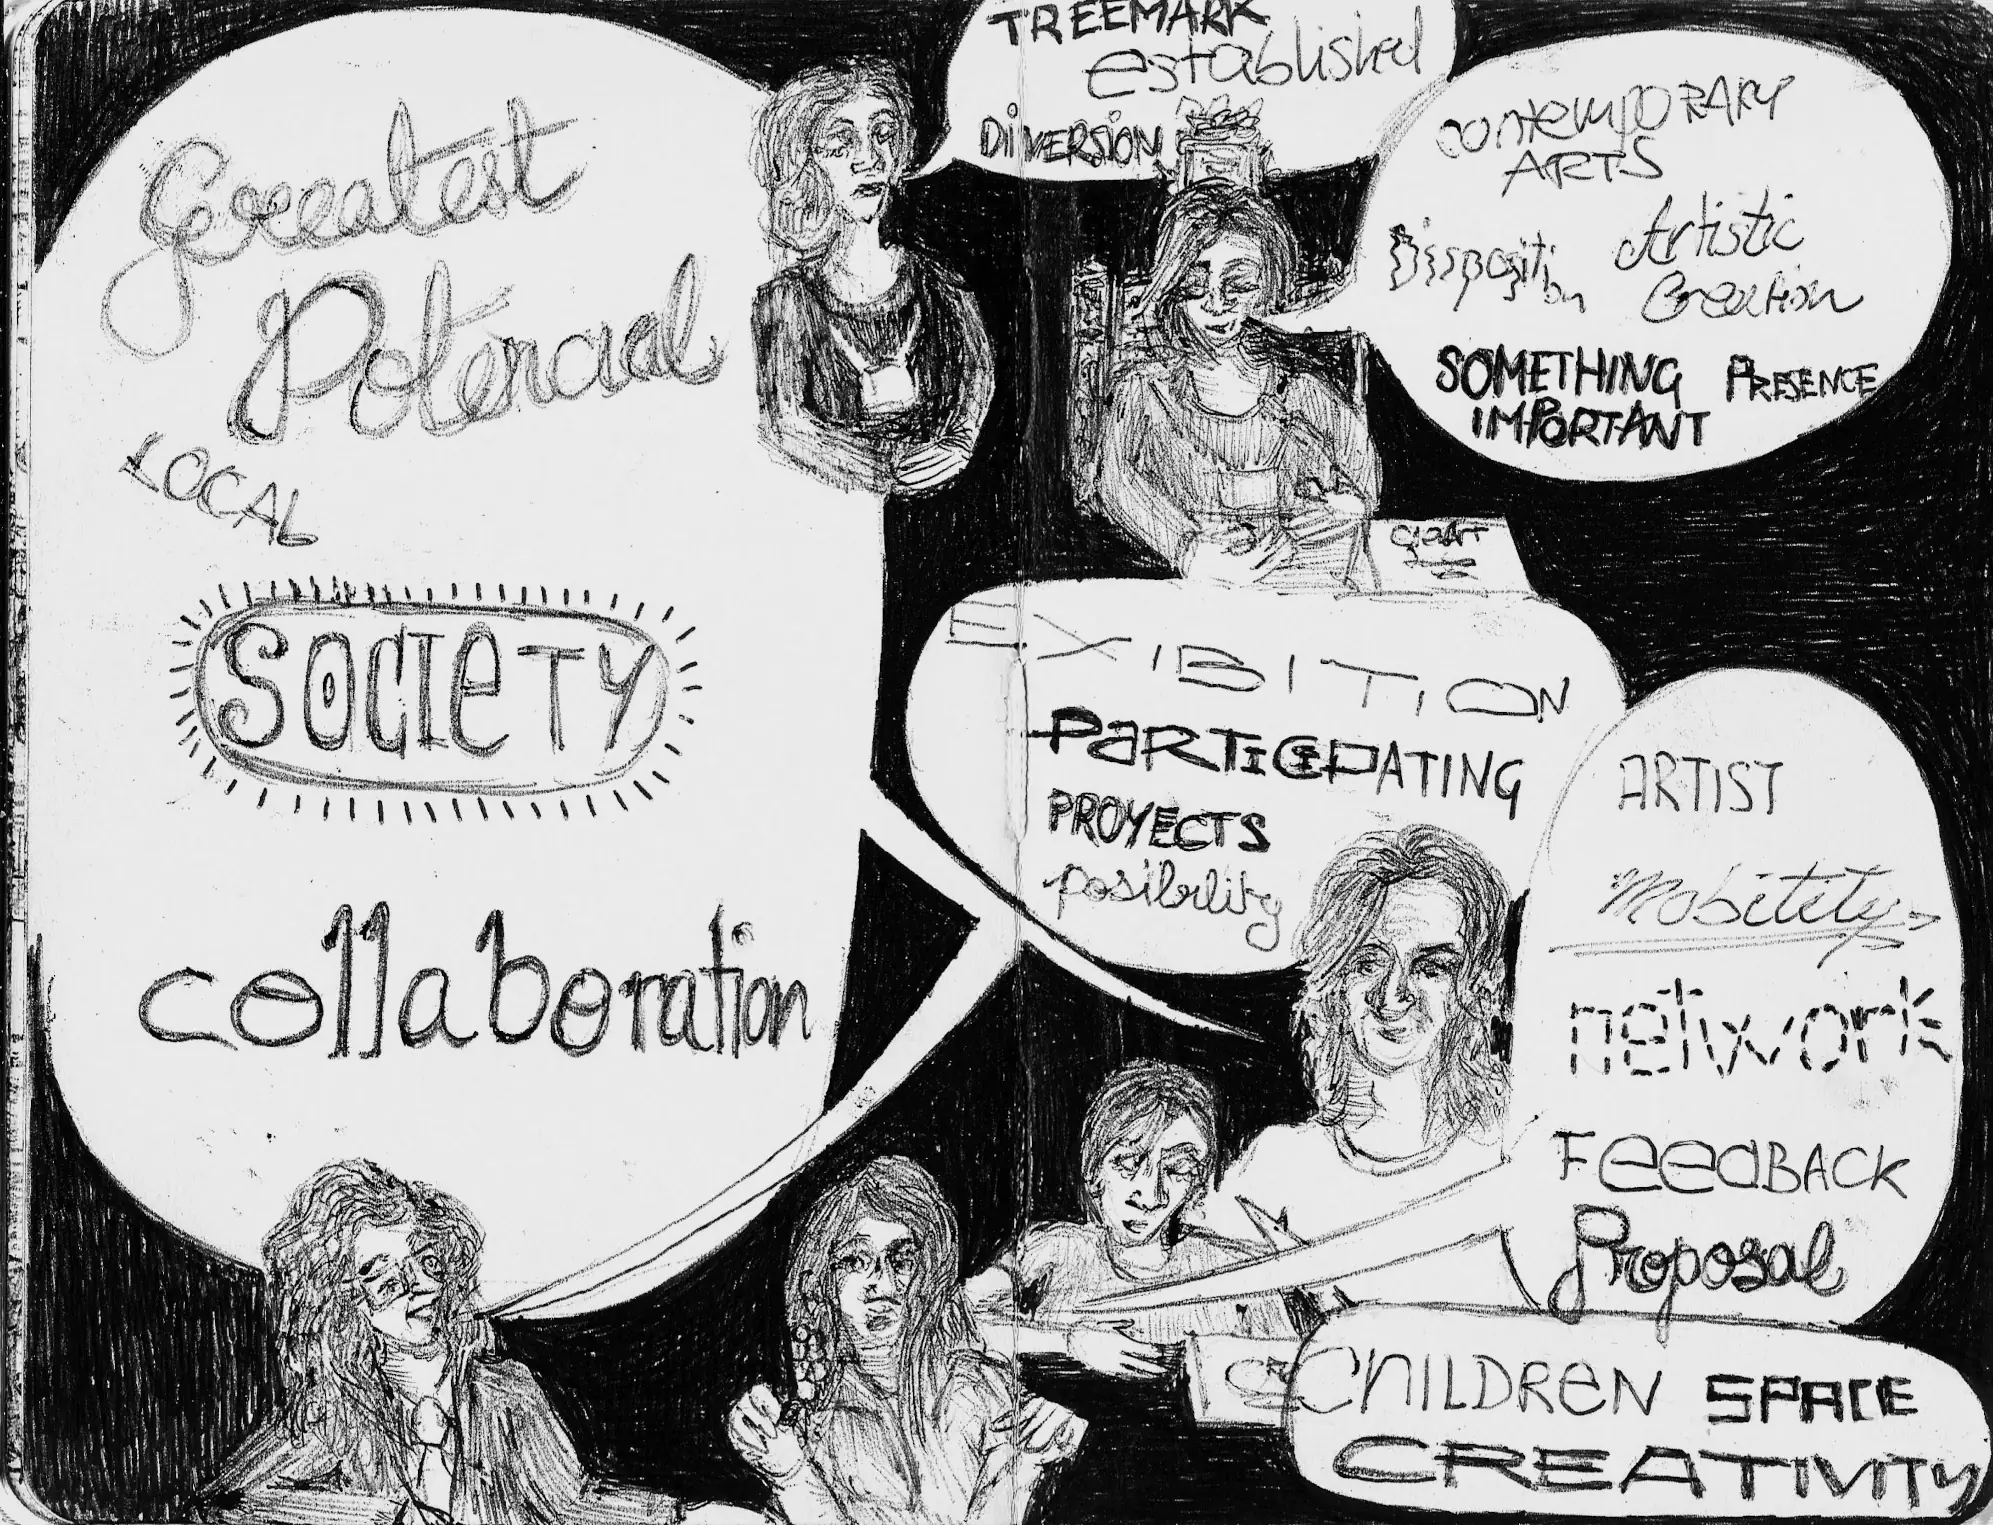 Greatest
Potencial
LOCAL
SOCIETY
collaboration
TREEMARK
established
DIVERSION
contemporary
ARTS
Disposition
Artistic
Creation
SOMETHING
IMPORTANT
PRESENCE
EXIBITION
PARTICIPATING
PROYECTS
posibility
ARTIST
Mobility
network
FEEDBACK
Proposal
CHILDREN SPACE
CREATIVITY